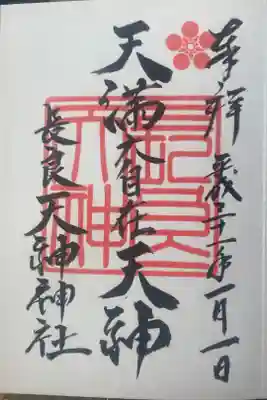 奉拝 平成三十一年一月一日
天満大自在天神
長良天神神社
長良
天神